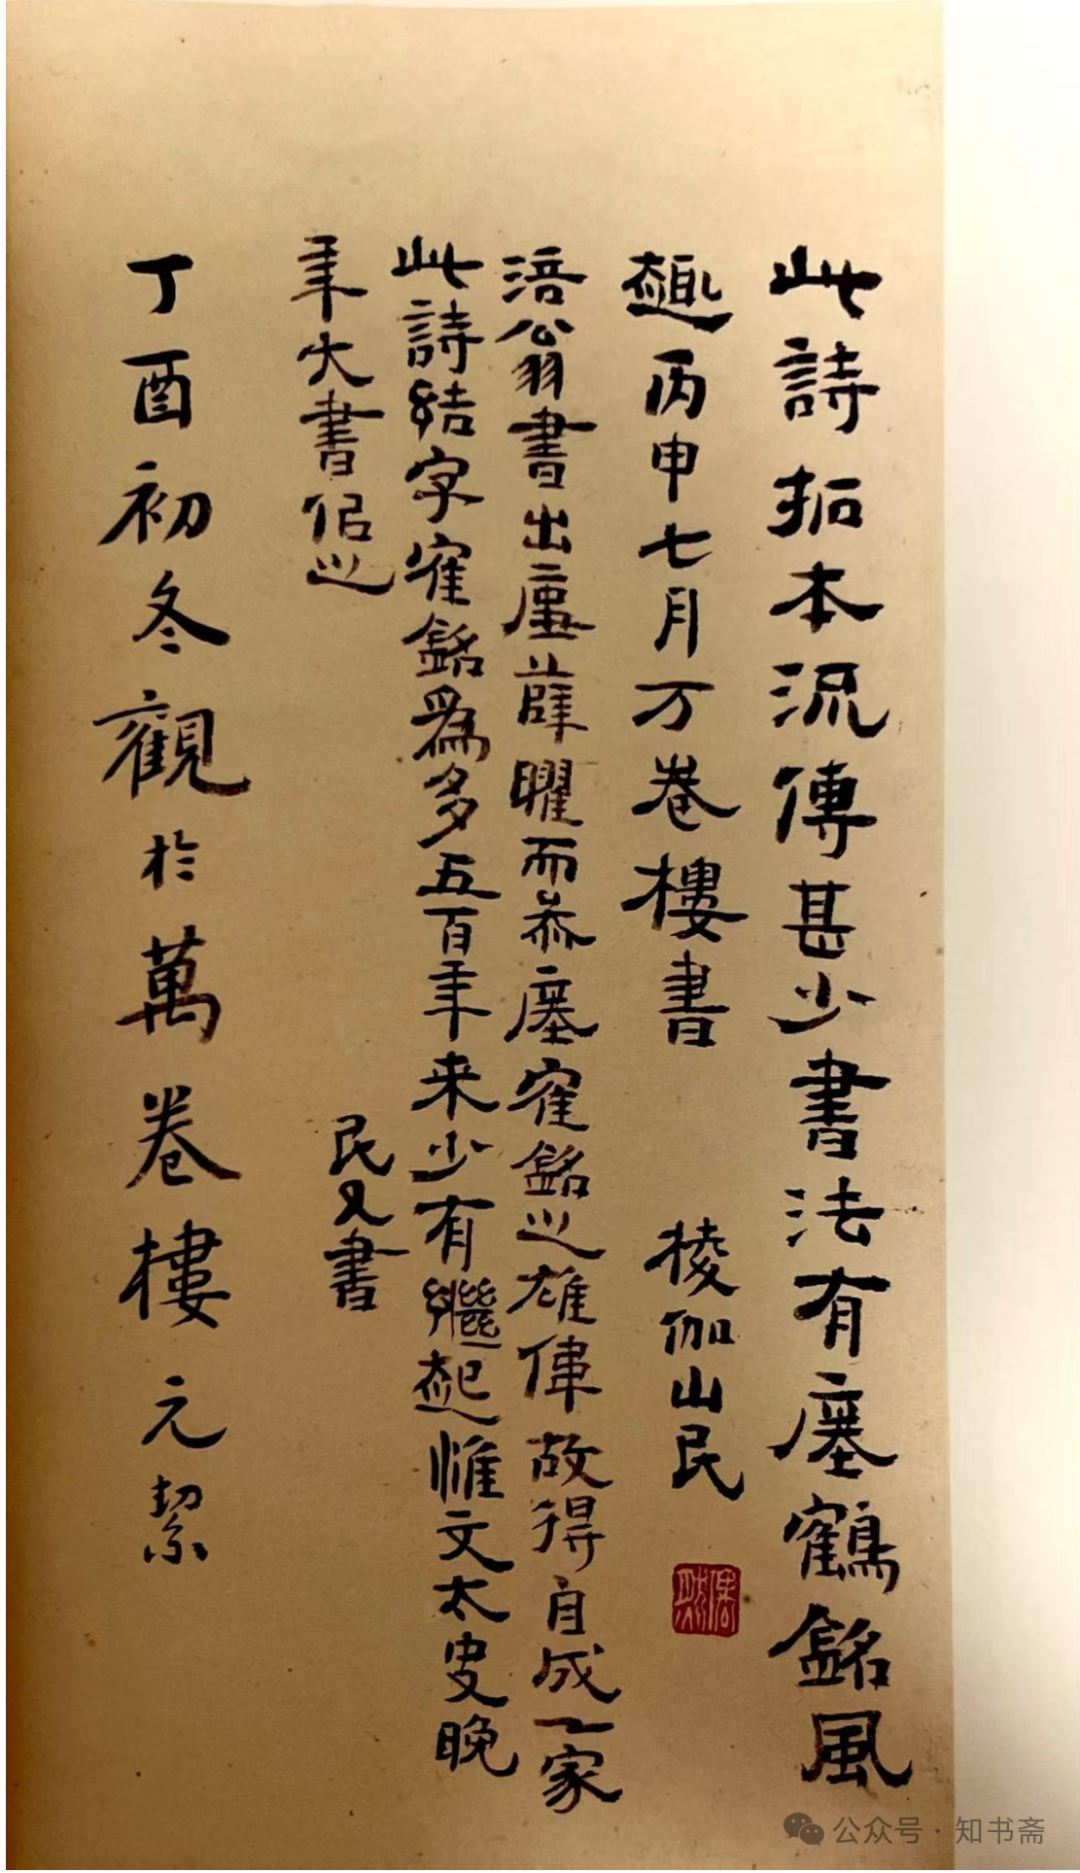 此詩拓本流傳甚少書法有瘞鶴銘風
趣丙申七月万卷樓書 棱伽山民
涪翁書出廛薛曜而叅瘞寉銘之雄偉故得自成一家
此詩結字寉銘為多五百年来少有繼起惟文太史晚
年大書佀之 民又書
丁酉初冬觀於萬卷樓元絜
公众号·知书斋